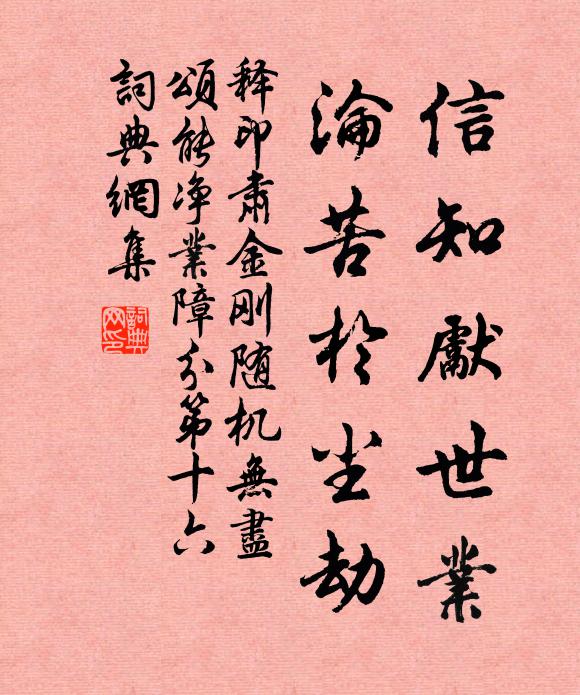 信知獻世業
淪苦於尘劫
释印肅金刚随机無盡
頌能净業障分第十六
詞典網集
詞典
网印